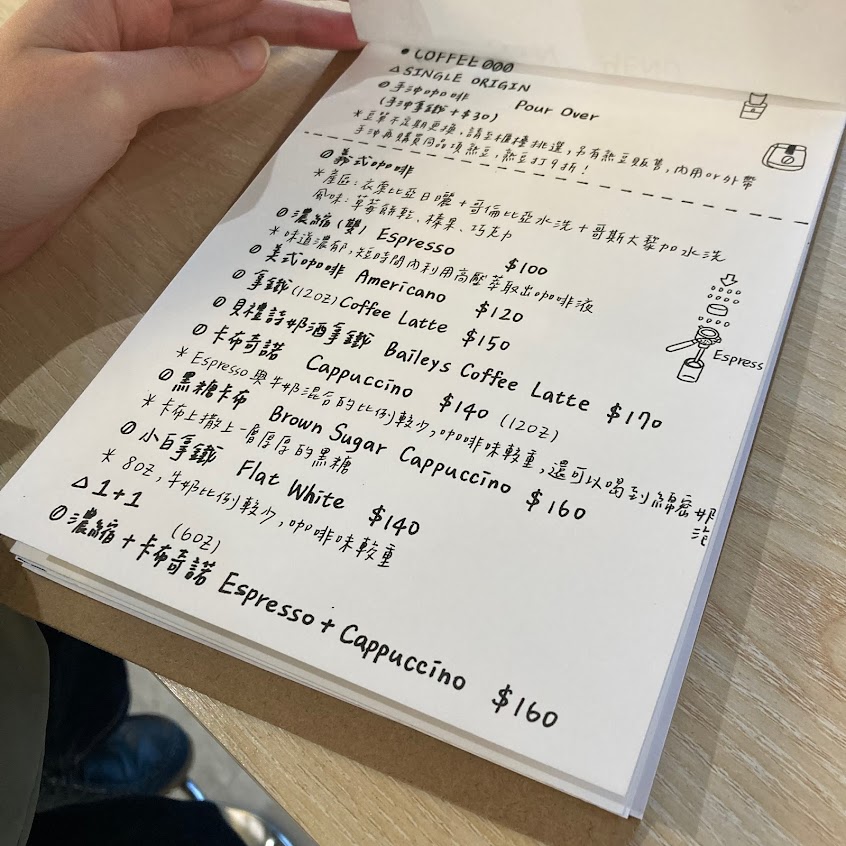 • COFFEE
△ SINGLE ORIGIN
手沖咖啡 Pour Over
(手沖拿鐵+$30)
*豆單不定期更換,請至櫃檯挑選,另有熟豆販售,內用or外帶
手沖再購買同品項熟豆,熟豆打9折!
義式咖啡
*產區:衣索比亞日曬+哥倫比亞水洗+哥斯大黎加水洗
風味:草莓餅乾、榛果、巧克力
濃縮(雙) Espresso $100
*味道濃郁,短時間內利用高壓萃取出咖啡液
美式咖啡 Americano $120
拿鐵(12oz) Coffee Latte $150
貝禮詩奶酒拿鐵 Baileys Coffee Latte $170
卡布奇諾 Cappuccino $140 (12oz)
*Espresso與牛奶混合的比例較少,咖啡味較重,還可以喝到綿密奶泡
黑糖卡布 Brown Sugar Cappuccino $160
*卡布上撒上一層厚厚的黑糖
小白拿鐵 Flat White $140
* 8oz,牛奶比例較少,咖啡味較重
△ 1+1
(6oz)
濃縮+卡布奇諾 Espresso + Cappuccino $160
Espress